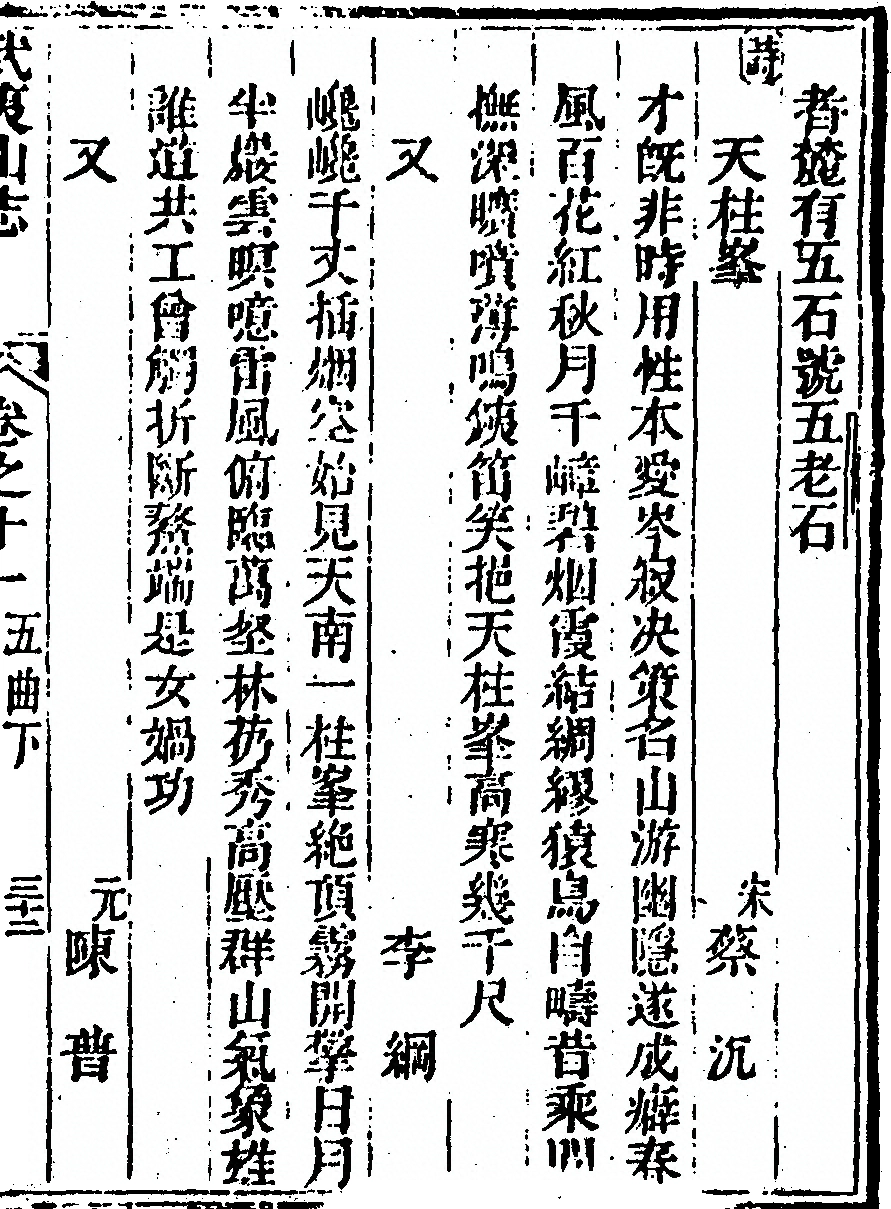 者庵有五石號五老石
詩
天柱峯
宋蔡沉
才旣非時用性本愛岑寂决策名山游幽隱遂成癖春
風百花紅秋月千嶂碧烟霞結綢繆猿鳥自疇昔乘
撫深噴薄鳴鐵笛笑挹天柱峯高寒幾千尺
又
李綱
巉巉千丈插烟空始見天南一柱峯絶頂霧開擎日月
半巖雲暝噫雷風俯臨萬壑林秀高壓群山氣象雄
誰道共工曾觸折斷鰲端是女媧功
又
元陳普
武夷山志
卷之十一
五曲下
三十二